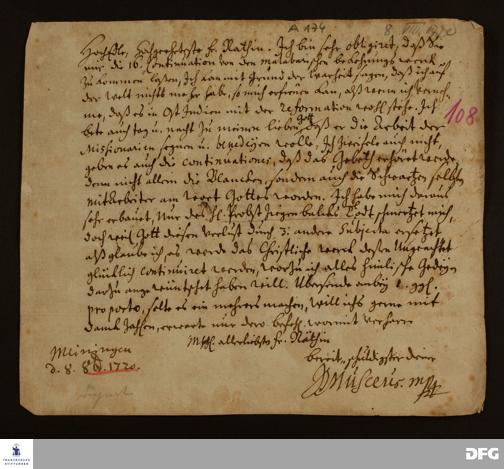 A 174
108
HochEdle, Hochgeehrteste fr. Räthin. Ich bin sehr obligiret, daß Sie
mir die 16. Continuation von dem malabarischen bekehrungs werck
zu kommen laßen, Ich kan mit grund der Warheit sagen, daß ich auf
der Welt nichts mehr habe, so mich erfreuen kan, alß wenn ich verneh-
me, daß es in Ost Indien mit der reformation wohl stehe. Ich
bete auch tag u. nacht zu meinen lieben Gott daß er die Arbeit der
Missionarien segnen u. benedigen wolle, Ich zweifele auch nicht,
geben es auch die Continuationes, daß das Gebeth erhöret werde,
denn nicht allein die Blancken, sondern auch die Schwartzen selbsten
mitarbeiter am wort Gottes worden. Ich habe mich daraus
sehr erbauet, Nur des H. Probst Ziegenbalgs Todt schmertzet mich,
doch weil Gott diesen verlust durch 3. andere Subjecta ersetzet
alß glaube ich, es werde das Christliche werck dessen Ungeachtet
glücklich Continuiret werden, wozu ich alles
darzu angewünschet haben will. Übersende anbey 1. ggl.
pro porto, solte es ein mehrers machen, will ichs gerne mit
danck zahlen, erwarte nur dero befehl, womit verharre
allerliebste fr. Räthin
Meiningen
d. 8. 8br. 1720.
bereit, schuldigster diener
Müscerus. mp